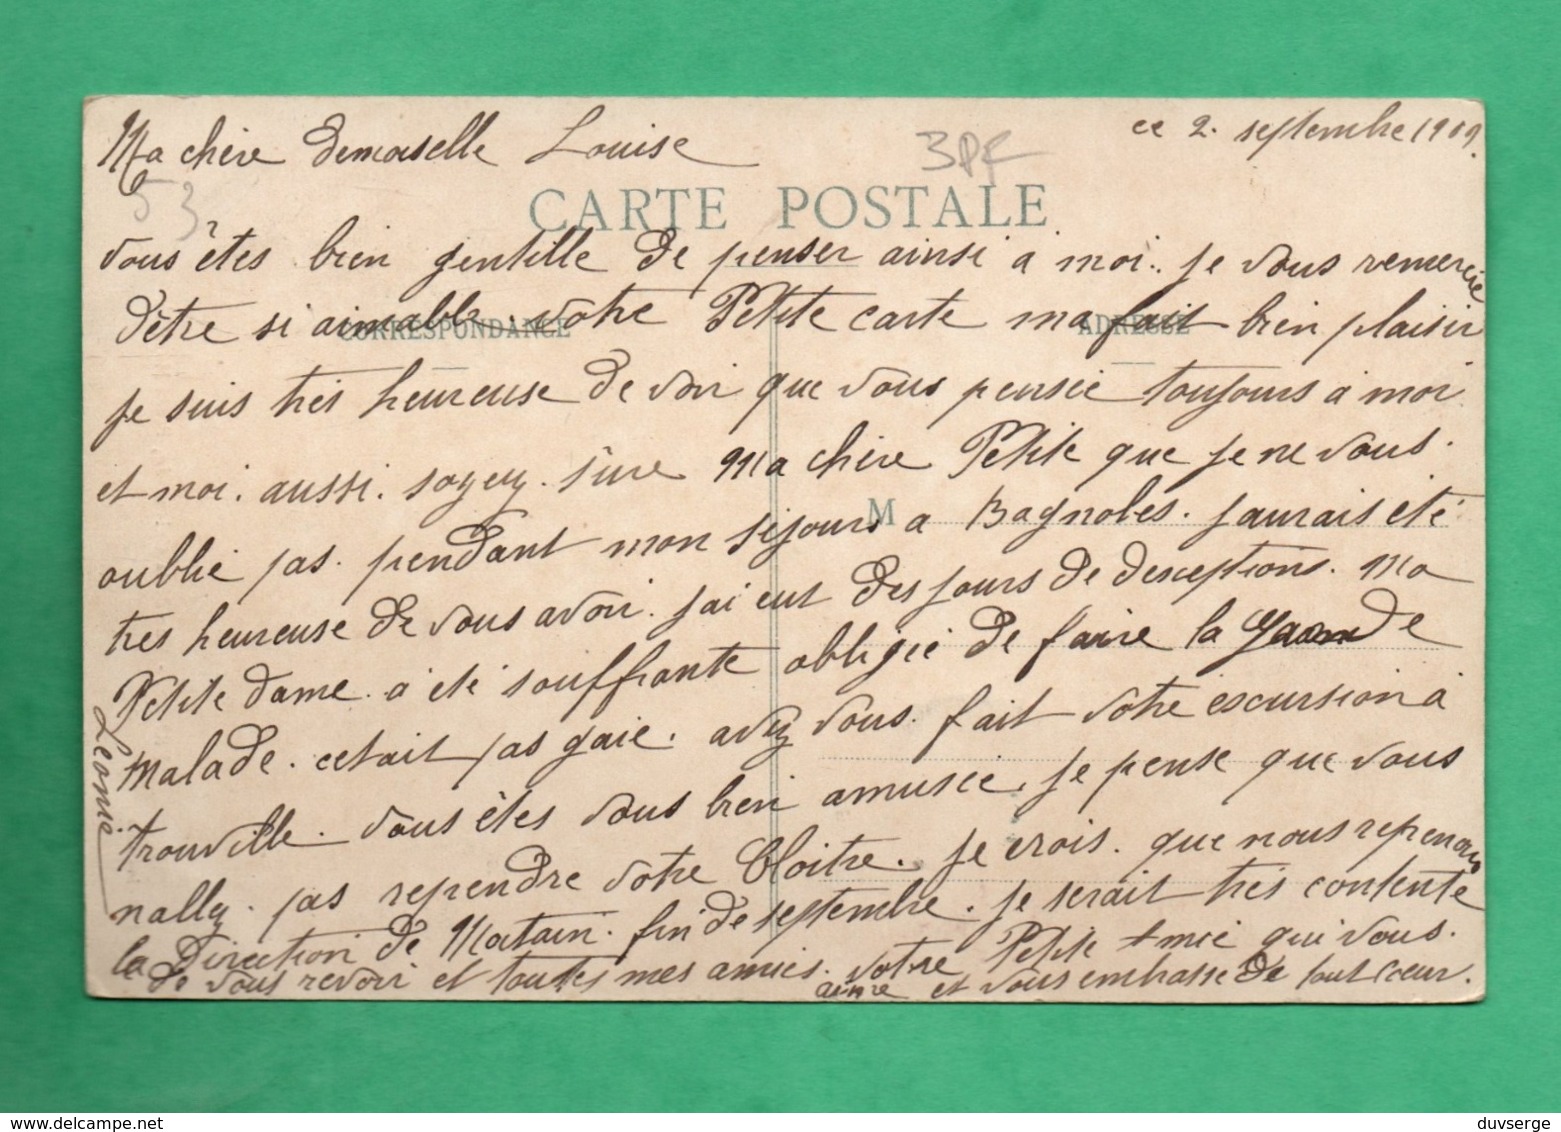 ce 2. septembre 1909.
Ma chère demoiselle Louise
3PF
53
CARTE POSTALE
vous êtes bien gentille de penser ainsi a moi.. je vous remercie
d'être si aimable. votre Petite carte ma fait bien plaisir
CORRESPONDANCE
ADRESSE
je suis très heureuse de voir que vous pensée toujours a moi
et moi. aussi. soyez. sûre Ma chère Petite que je ne vous.
M
oublié pas. pendant mon séjours a Bagnoles. jaurais été
très heureuse de vous avoir. jai eut des jours de deseptions. Ma
Petite dame. a été souffrante obligée de faire la garde
Malade. cetait pas gaie. avez vous. fait votre escursion à
trouville. vous êtes vous bien amusée. je pense que vous
nallez. pas rependre votre Cloitre. je crois. que nous reprenons
la Direction de Mortain. fin de septembre. je serait très contente
de vous revoir et toutes mes amies. votre Petite Amie qui vous.
aime et vous embrasse de tout cœur.
Leonie
delcampe.net
duvserge